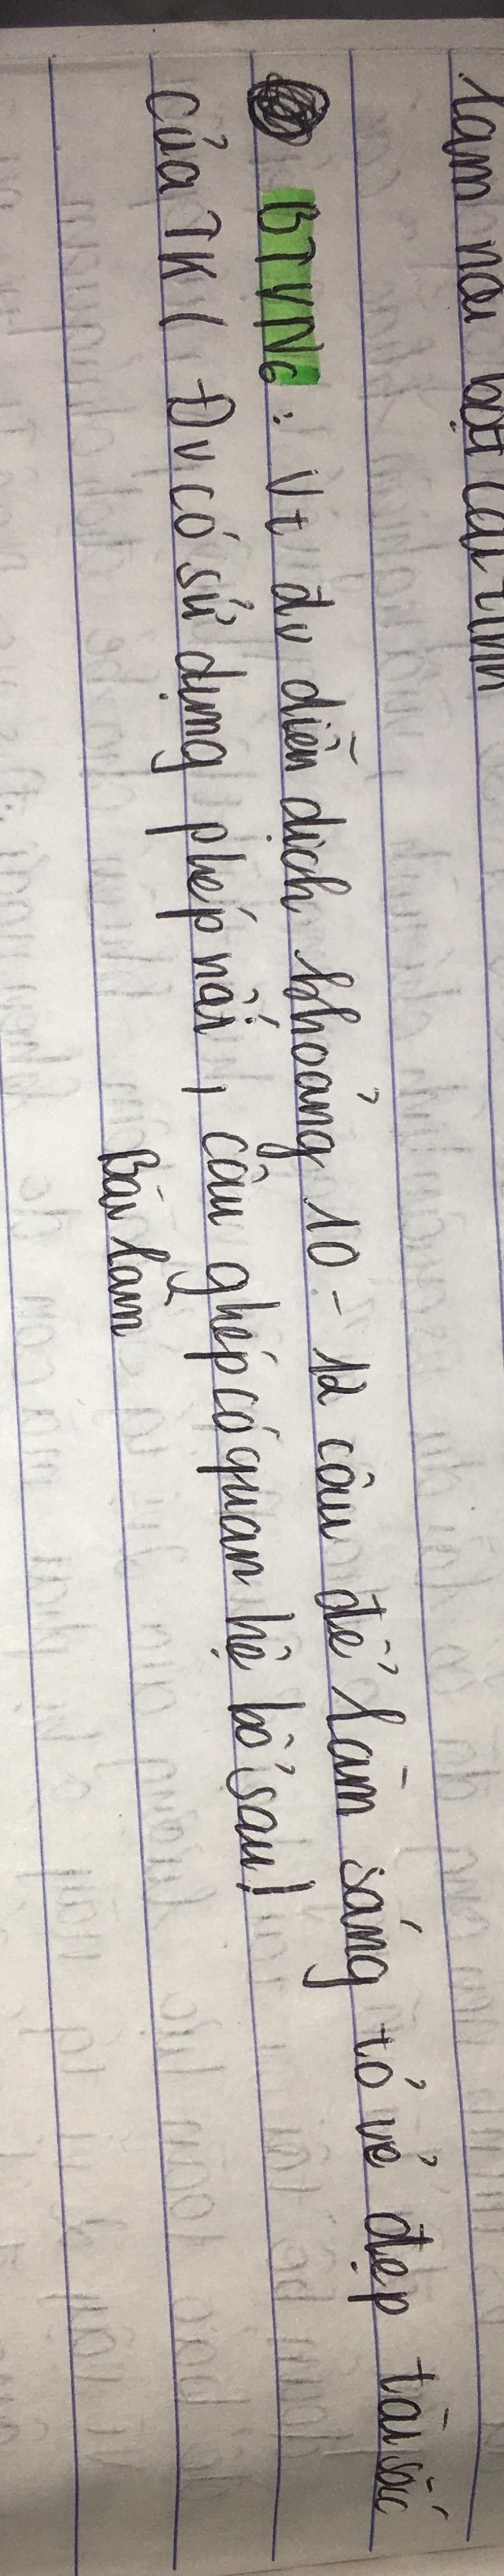 làm nổi bật cái
BTVNG: Vt đv diễn dịch khoảng 10 - 12 câu để làm sáng tỏ vẻ đẹp tài sắc
của TK ( Đv có sử dụng phép nối, câu ghép có quan hệ bổ sau )
Bài làm